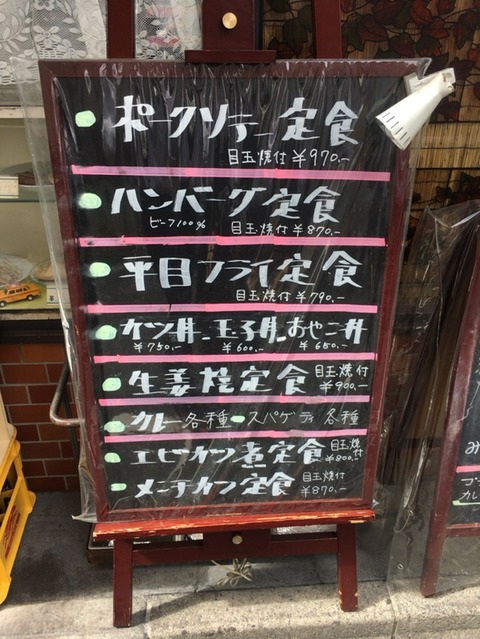 ポークソテー定食
目玉焼付 ¥970.-
ハンバーグ定食
ビーフ100% 目玉焼付 ¥870.-
平目フライ定食
目玉焼付 ¥790.-
カツ丼 玉子丼 おやこ丼
¥750.- ¥600.- ¥650.-
生姜焼定食 目玉焼付 ¥900.-
カレー各種 スパゲティ各種
エビカツ煮定食 目玉焼付 ¥800.-
メンチカツ定食 目玉焼付 ¥870.-